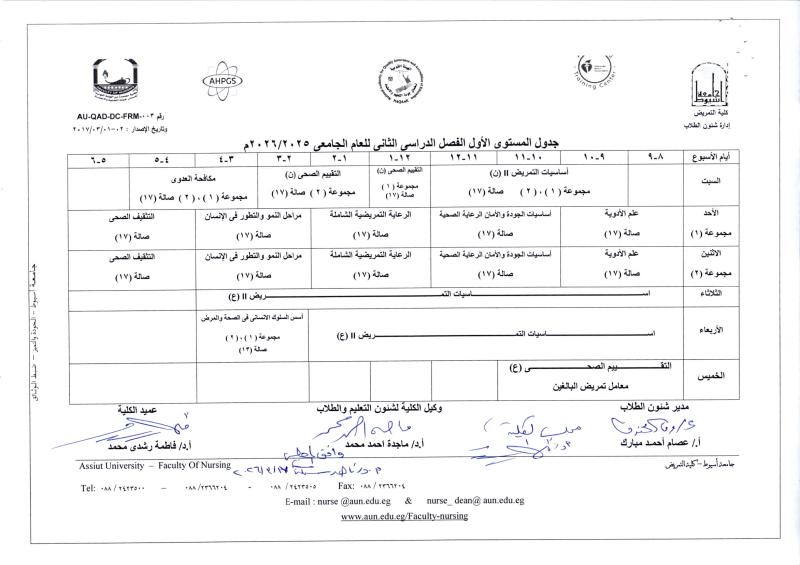 AHPGS
كلية التمريض
إدارة شئون الطلاب
رقم AU-QAD-DC-FRM-٠٠٣
وتاريخ الإصدار : ٠٢-٠١/٠٣/٢٠١٧
جدول المستوى الأول الفصل الدراسي الثاني للعام الجامعي ٢٠٢٦/٢٠٢٥م
أيام الأسبوع ٨-٩ ٩-١٠ ١٠-١١ ١١-١٢ ١٢-١ ١-٢ ٢-٣ ٣-٤ ٤-٥ ٥-٦
السبت
أساسيات التمريض II (ن)
مجموعة (١) ، (٢) صالة (١٧)
التقييم الصحى (ن)
مجموعة (١)
صالة (١٧)
التقييم الصحى (ن)
مجموعة (٢) صالة (١٧)
مكافحة العدوى
مجموعة (١) ، (٢) صالة (١٧)
الأحد
مجموعة (١)
علم الأدوية
صالة (١٧)
أساسيات الجودة والأمان الرعاية الصحية
صالة (١٧)
الرعاية التمريضية الشاملة
صالة (١٧)
مراحل النمو والتطور فى الإنسان
صالة (١٧)
التثقيف الصحى
صالة (١٧)
الاثنين
مجموعة (٢)
علم الأدوية
صالة (١٧)
أساسيات الجودة والأمان الرعاية الصحية
صالة (١٧)
الرعاية التمريضية الشاملة
صالة (١٧)
مراحل النمو والتطور فى الإنسان
صالة (١٧)
التثقيف الصحى
صالة (١٧)
الثلاثاء
اســـاسيات التمـــريض II (ع)
الأربعاء
اســـاسيات التمـــريض II (ع)
أسس السلوك الانسانى فى الصحة والمرض
مجموعة (١) ، (٢)
صالة (١٣)
الخميس
التقـــييم الصحـــى (ع)
معامل تمريض البالغين
مدير شئون الطلاب
وكيل الكلية لشئون التعليم والطلاب
عميد الكلية
أ/ عصام أحمد مبارك
أ.د/ ماجدة احمد محمد
أ.د/ فاطمة رشدى محمد
جامعة أسيوط – كلية التمريض
Assiut University – Faculty Of Nursing
Tel: ٠٨٨ /٢٤٢٣٥٠٠ – ٠٨٨ /٢٣٦٦٢٠٤ - ٠٨٨ / ٢٤٢٣٥٠٥ Fax: ٠٨٨ /٢٣٦٦٢٠٤
E-mail : nurse @aun.edu.eg & nurse_ dean@ aun.edu.eg
www.aun.edu.eg/Faculty-nursing